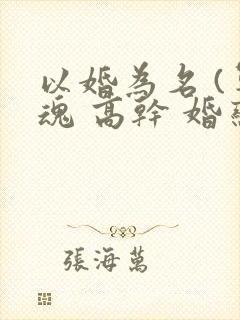 以婚為名(
魂 高幹 婚
張海萬